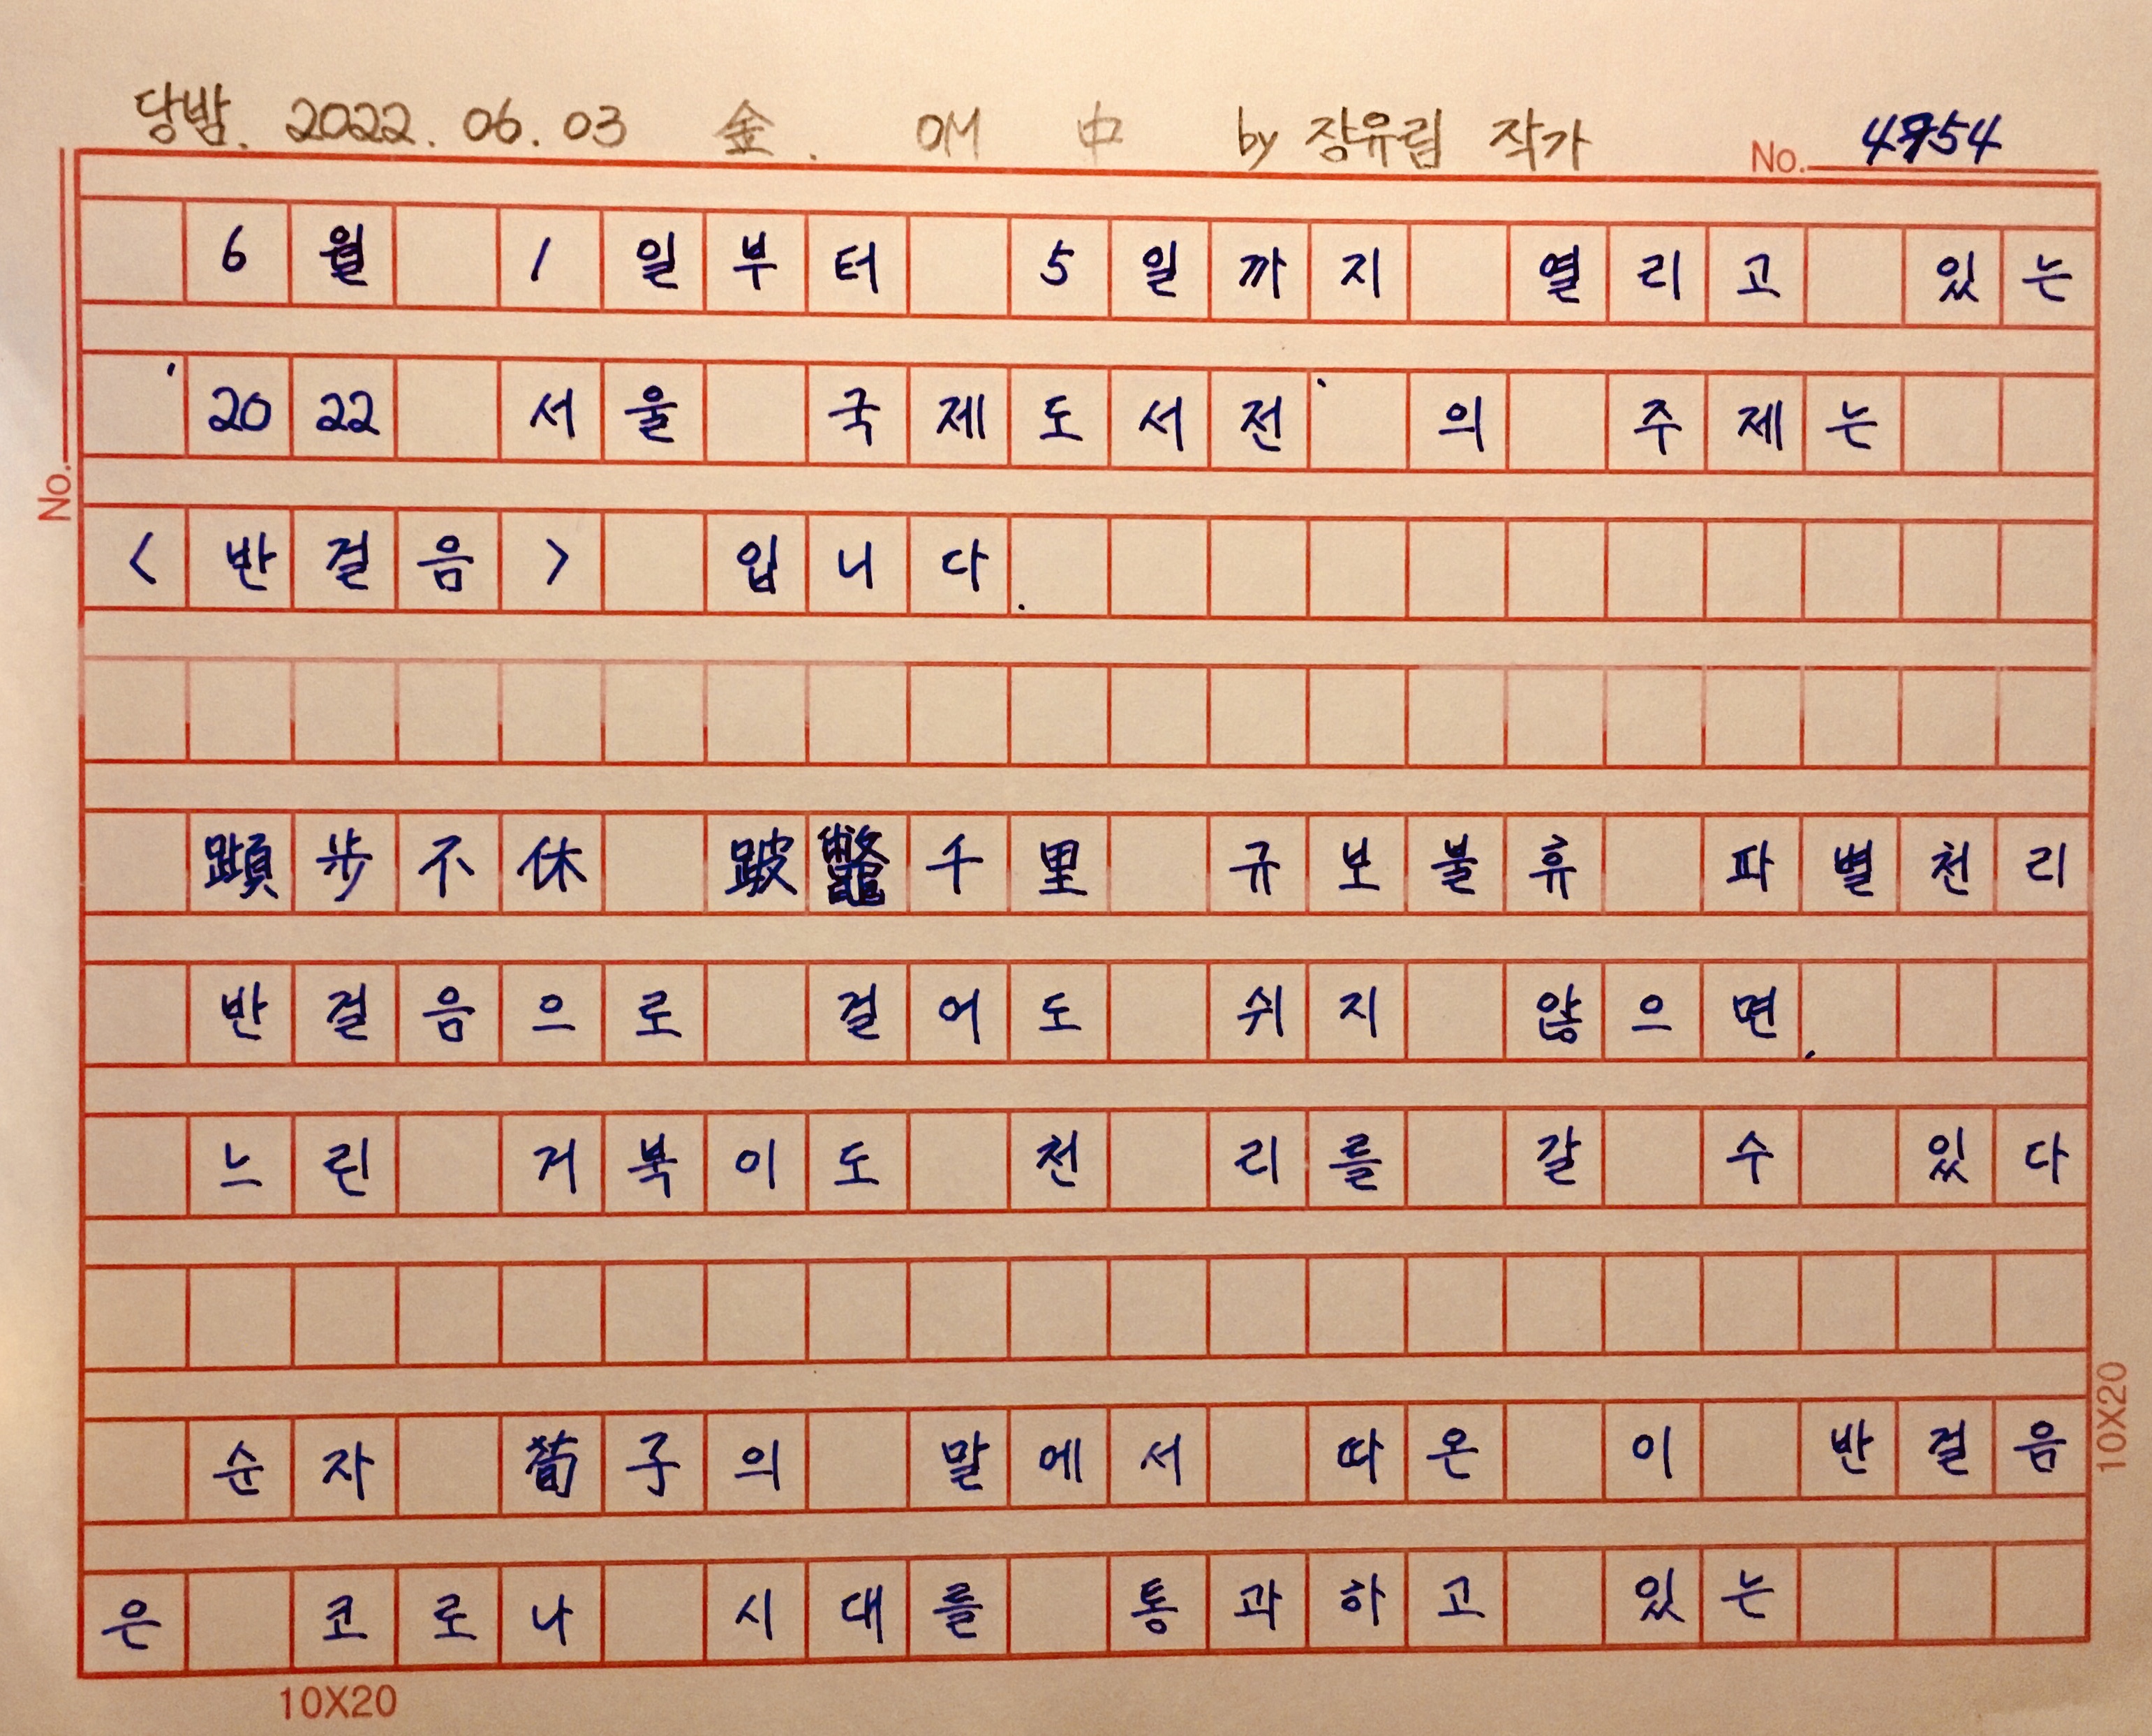 당밤. 2022. 06. 03 金. 예 中 by 장유림 작가 No. 4954
6월 1일부터 5일까지 열리고 있는
'2022 서울 국제도서전' 의 주제는
No.
<반걸음> 입니다.
蹞步不休 跛鼈千里 규보불휴 파별천리
반걸음으로 걸어도 쉬지 않으면,
느린 거북이도 천 리를 갈 수 있다
순자 荀子의 말에서 따온 이 반걸음
10X20
은 코로나 시대를 통과하고 있는
10X20